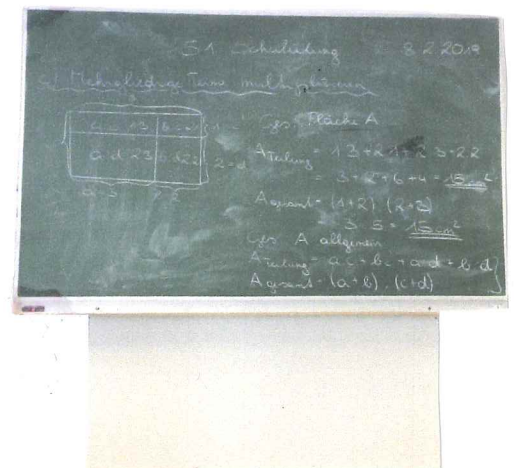 51. Schulübung 8.2.2019
c) Mehrgliedrige Terme multiplizieren
a·c 1·3 b·c
a·d 2·3 b·d 2·2
1
2=d
a=3 2
Ges: Fläche A
A Teilung = 1·3+2·1+2·3+2·2
= 3+2+6+4=15cm²
A gesamt = (1+2)·(2+3)
3·5=15cm²
Ges A allgemein
A Teilung = a·c+b·c+a·d+b·d
A gesamt = (a+b)·(c+d)